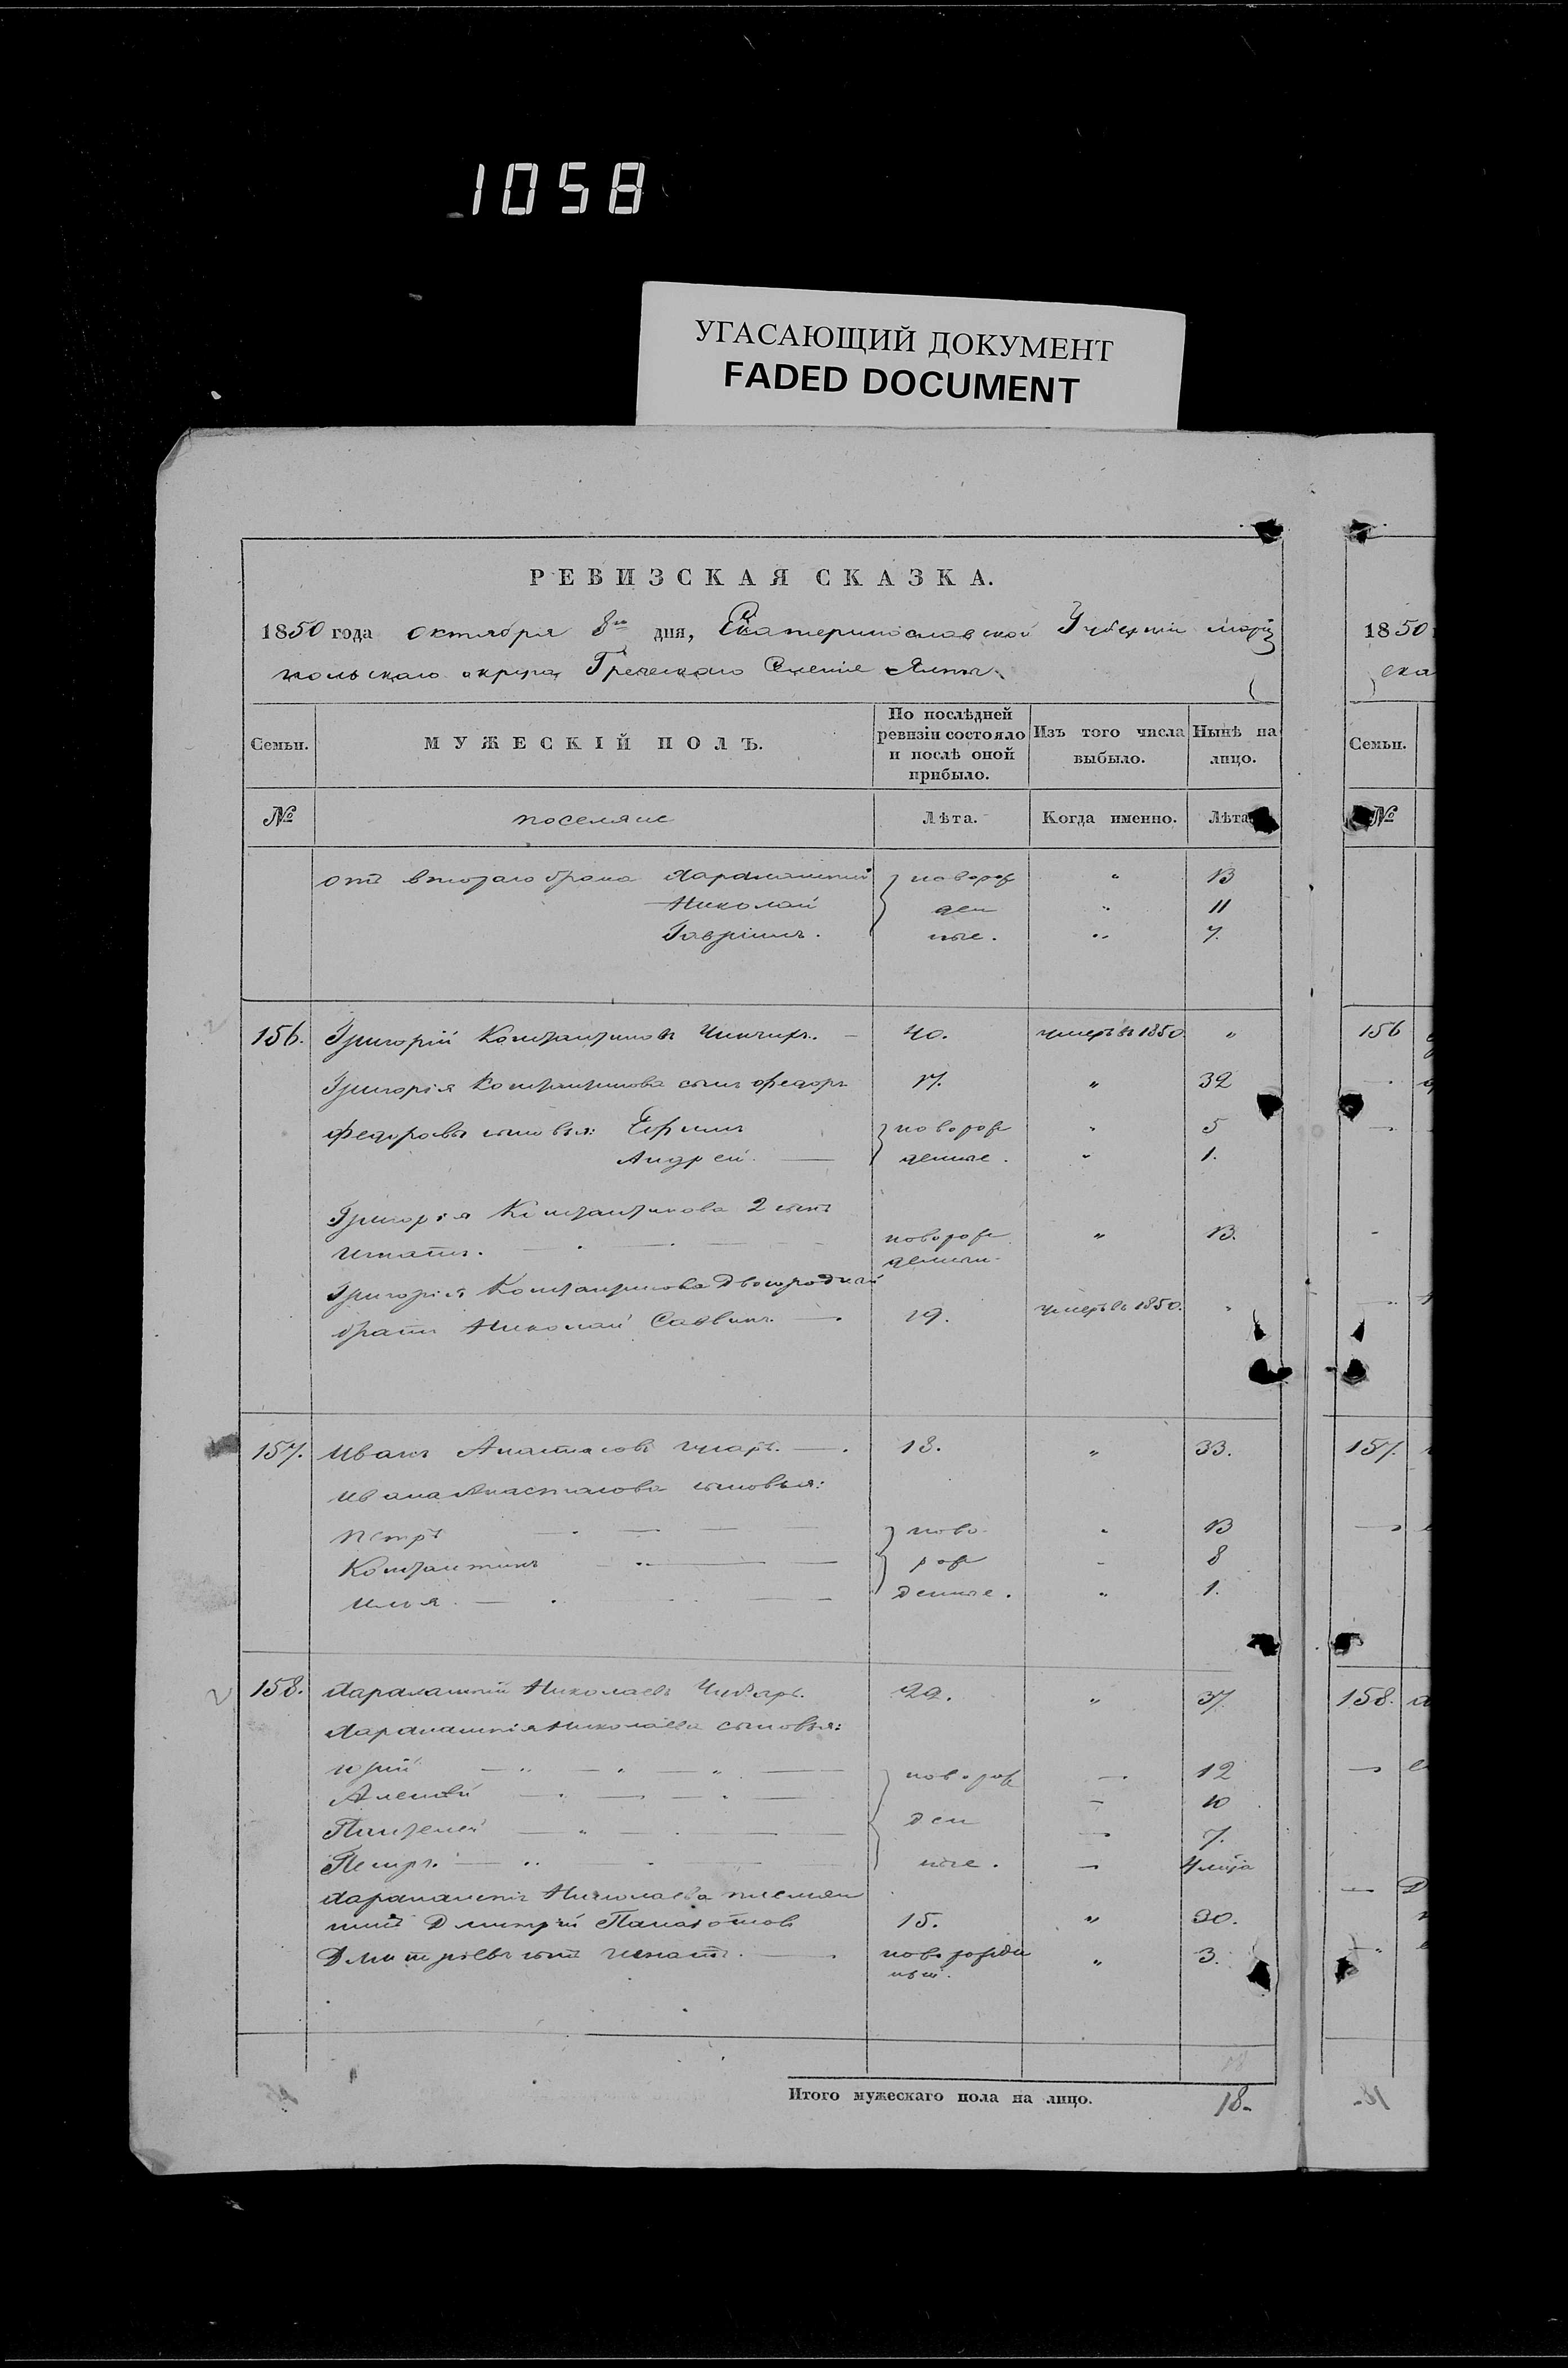 1058
УГАСАЮЩИЙ ДОКУМЕНТ
FADED DOCUMENT
РЕВИЗСКАЯ СКАЗКА.
1850 года октября 8го дня, Екатеринославской Губернiи Марiу
польскаго округа Греческаго Селенiе Ялты
Семьи. МУЖЕСКІЙ ПОЛЪ. По послѣдней ревизіи состояло и послѣ оной прибыло. Изъ того числа выбыло. Нынѣ на лицо.
№ поселяне Лѣта. Когда именно. Лѣта
отъ втораго брака Харлампiй новорож " 13
Николай ден " 11
Гаврiилъ. ные. " 7.
156. Григорiй Константиновъ 40. умеръ въ 1850. "
Григорiя Константинова сынъ Федоръ 17. " 32
Федоровы сыновья: Ефимъ новорож " 5
Андрей. денные. " 1.
Григорiя Константинова 2 сынъ
Игнатъ. новорож " 13.
денный.
Григорiя Константинова двоюродный
братъ Николай Саввинъ. 19. умеръ въ 1850. "
157. Иванъ Анастасовъ 18. " 33.
Ивана Анастасова сыновья:
Петръ ново " 13
Константинъ рож " 8
Илья. денные. " 1.
158. Харлампiй Николаевъ Чибаръ. 22. " 37
Харлампiя Николаева сыновья:
Юрiй новорож 12
Алексѣй 10
Пантелей ден 7.
Петръ. ные. 4 мѣся
Харлампiя Николаева племян
никъ Дмитрiй Панаiотовъ 15. " 30.
Дмитрiевъ сынъ Игнатъ. новорожден " 3.
ный.
Итого мужескаго пола на лицо. 18.
1850
ека
Семьи.
№
156
157.
158.